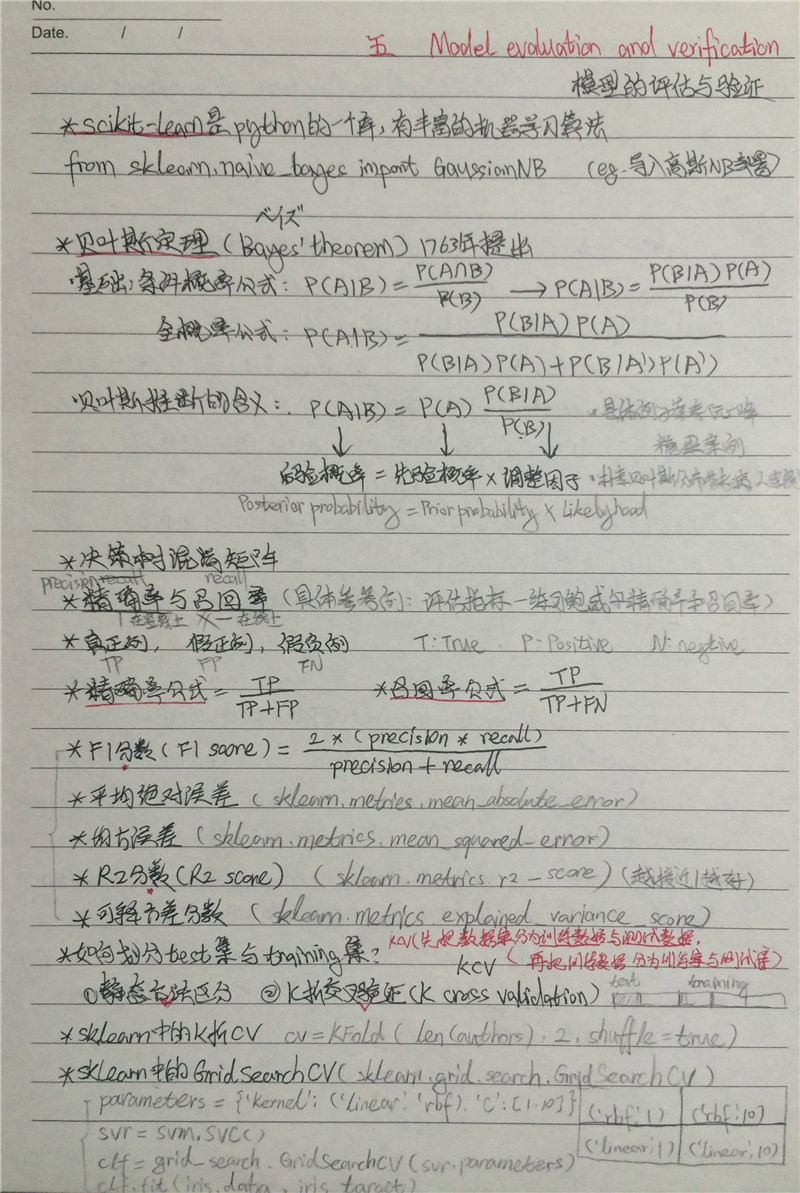 No.
Date. / /
五 Model evaluation and verification
模型的评估与验证
*scikit-learn是python的一个库,有丰富的机器学习算法
from sklearn.naive_bayes import GaussianNB (eg.导入高斯NB
ベイズ
*贝叶斯定理(Bayes'theorem)1763年提出
基础:条件概率公式:P(A|B)=P(A∩B)/P(B) →P(A|B)=P(B|A)P(A)/P(B)
全概率公式:P(A|B)=P(B|A)P(A)/P(B|A)P(A)+P(B|A')P(A')
贝叶斯推断的含义: P(A|B)=P(A) P(B|A)/P(B)
↓ ↓ ↓
后验概率=先验概率×调整因子
Posterior probability=Prior probability×Likelyhood
*决策树 混淆矩阵
precision recall recall
*精确率与召回率(具体参考例:评估指标—练习鲍威尔精确率和召回率)
*真正例,假正例,假负例 T:True P:Positive N:negtive
TP FP FN
*精确率公式=TP/TP+FP *召回率公式=TP/TP+FN
*F1分数(F1 score)=2*(precision*recall)/precision+recall
*平均绝对误差(sklearn.metrics.mean_absolute_error)
*均方误差(sklearn.metrics.mean_squared_error)
*R2分数(R2 score) (sklearn.metrics.r2_score)(越接近1越好)
*可释方差分数(sklearn.metrics.explained_variance_score)
*如何划分test集与training集? KCV(先把数据集分为训练数据与测试数据,
KCV (再把训练数据分为训练集与测试集)
①静态方法区分 ②K折交叉验证(K cross validation) test training
*sklearn中的K折CV cv=KFold(len(authors),2,shuffle=true)
*sklearn中的GridSearchCV(sklearn.grid_search.GridSearchCV)
parameters={'kernel':('linear','rbf'),'C':[1,10]} ('rbf',1) ('rbf',10)
svr=svm.SVC() ('linear',1) ('linear',10)
clf=grid_search.GridSearchCV(svr.parameters)
clf.fit(iris.data,iris.target)